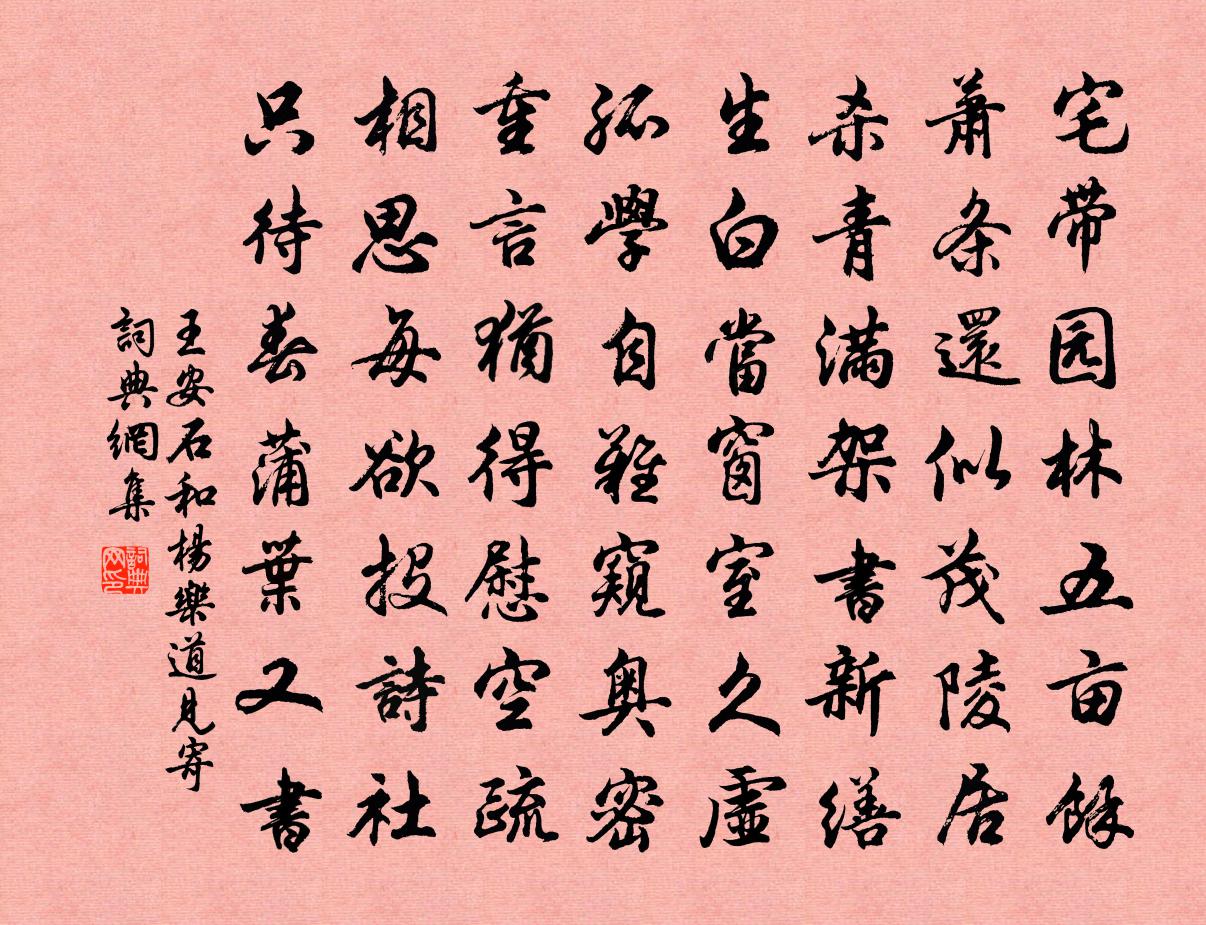 宅带园林五亩餘
萧条還似茂陵居
杀青满架書新繕
生白當窗室久虛
孤學自難窺奥密
重言猶得慰空疏
相思每欲投詩社
只待春蒲葉又書
王安石和楊樂道見寄
詞典網集
詞典网印